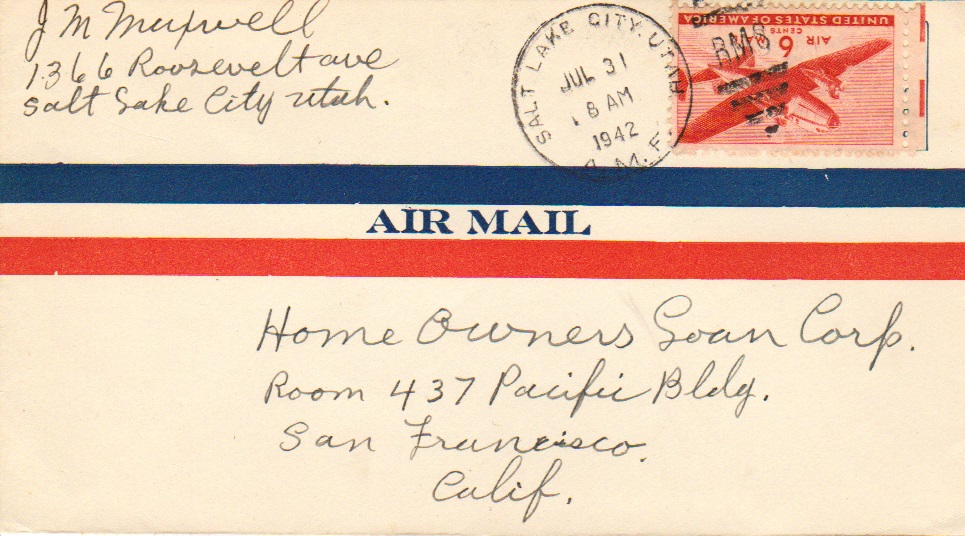 J M Maxwell
1366 Roosevelt ave
Salt Lake City Utah.
SALT LAKE CITY, UTAH
JUL 31
8 AM
1942
A. M. F.
RMS
UNITED STATES OF AMERICA
6 CENTS
AIR MAIL
AIR MAIL
Home Owners Loan Corp.
Room 437 Pacific Bldg.
San Francisco.
Calif.